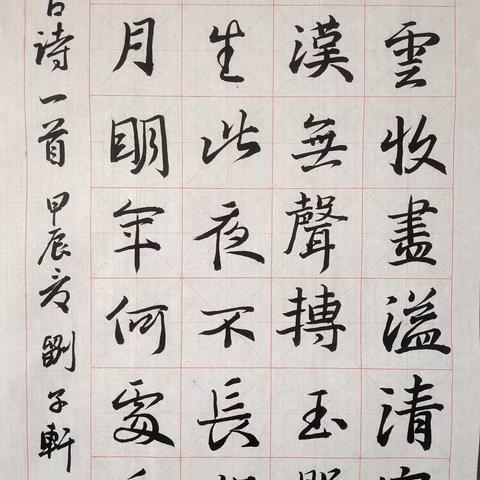 雲收盡溢清
漢無聲轉玉
生此夜不長
月明年何處
古詩一首 甲辰夏 劉子軒